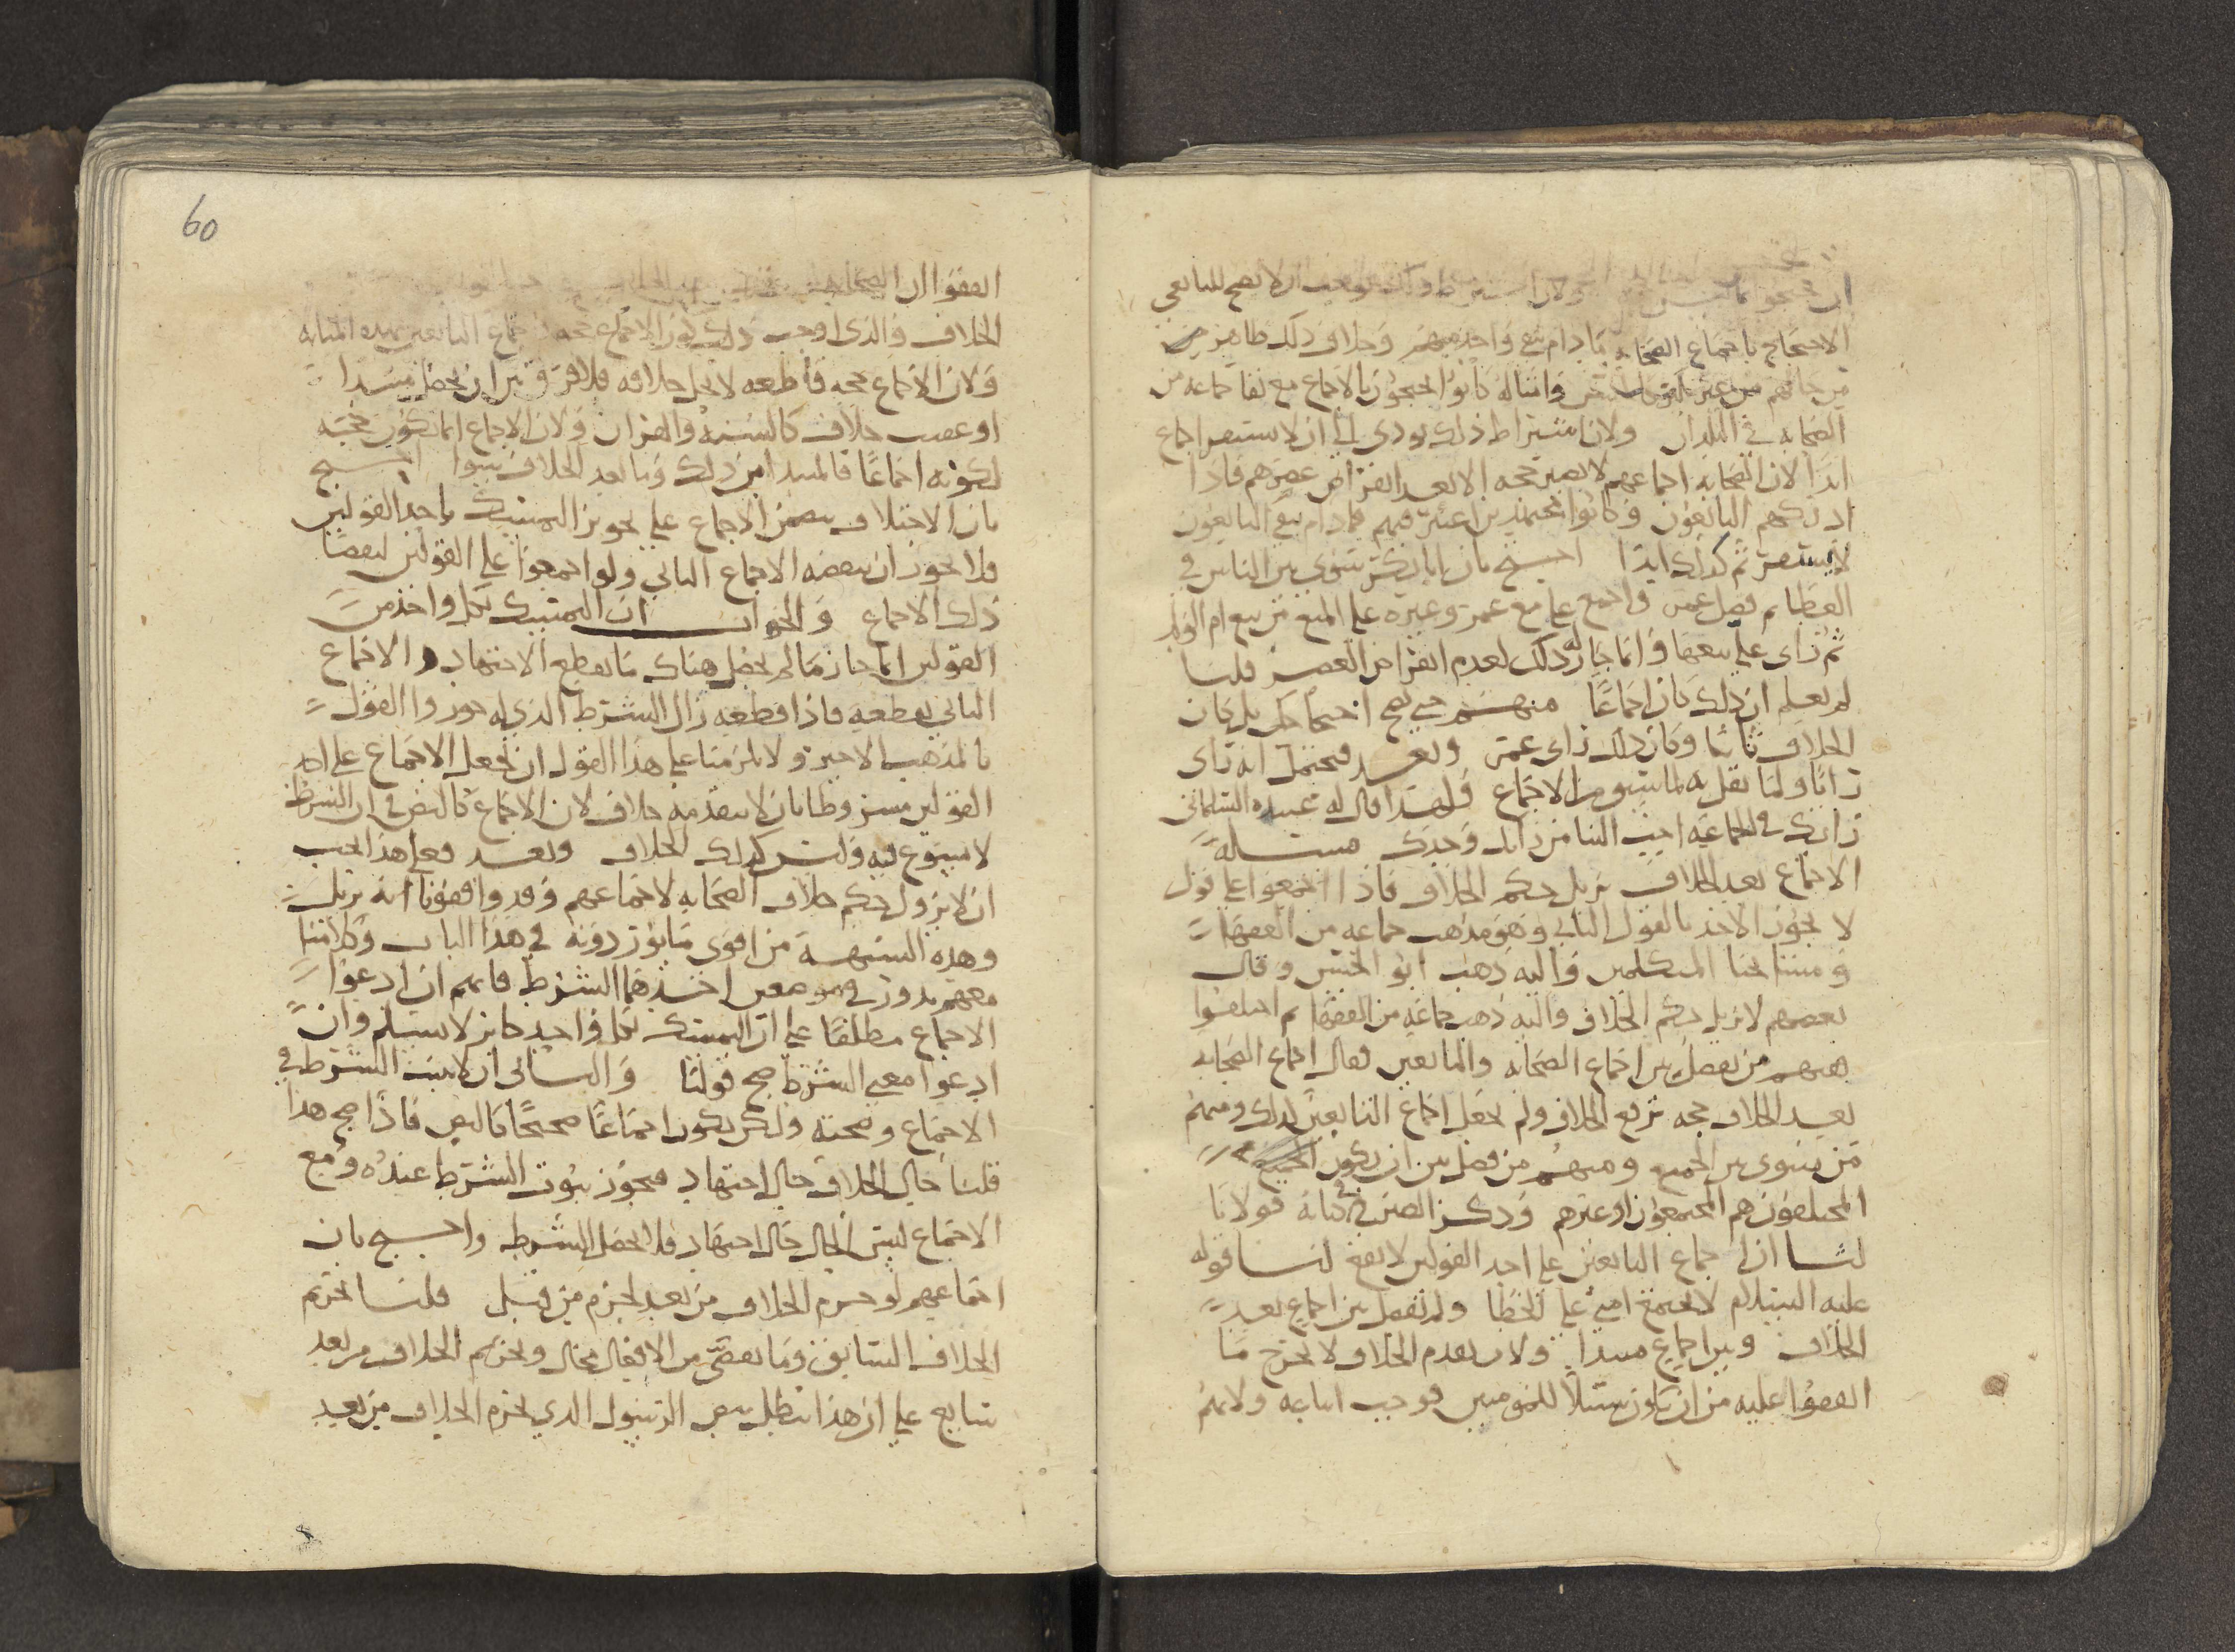 ولان اشتراط ذلك يوجب ان لا يصح للتابعي
الاحتجاج باجماع الصحابه ما دام بقي واحد منهم وخلاف ذلك ظاهر من
من حالهم وامثاله كانوا يحتجون بالاجماع مع بقا جماعه من
الصحابه في البلدان ولان اشتراط ذلك يودي الى ان لا يستقر اجماع
ابدا لان الصحابه اجماعهم لا يصير حجه الا بعد انقراض عصرهم فاذا
ادركهم التابعون وكانوا مجتهدين اعتبر فيهم فما دام بقي التابعون
لا يستقر ثم كذلك ابدا احتج بان ابا بكر سوى بين الناس في
العطا ثم فضل عمر واجمع علي مع عمر وغيره على المنع من بيع ام الولد
ثم راى علي بيعها وانما جاز له ذلك لعدم انقراض العصر قلنا
لم نعلم ان ذلك كان اجماعا منهم حتى يصح احتجاجكم بل كان
الخلاف ثابتا وكان ذلك راى عمر وبعد فيحتمل انه راى
رايا ولما نقل له لما تبين من الاجماع ولهذا قال له عبيده السلماني
رايك في الجماعه احب الينا من رايك وحدك مسئله
الاجماع بعد الخلاف يزيل حكم الخلاف فاذا اجتمعوا على قول
لا يجوز الاخذ بالقول الثاني وهو مذهب جماعه من الفقها
ومشايخنا المتكلمين واليه ذهب ابو الحسين وقال
بعضهم لا يزيل حكم الخلاف واليه ذهب جماعه من الفقها ثم اختلفوا
فمنهم من يفصل بين اجماع الصحابه والتابعين فقال اجماع الصحابه
بعد الخلاف حجه ترفع الخلاف ولم يجعل اجماع التابعين كذلك ومنهم
من يسوي بين الجميع ومنهم من فصل بين ان يكون الجميع
المختلفون هم المجتمعون او غيرهم وذكر الصيرفي في كتابه قولانا
لنا ان اجماع التابعين على احد القولين لا يقع لنا قوله
عليه السلام لا تجتمع امتي على الخطا ولم يفصل بين اجماع بعد
الخلاف وبين اجماع مبتدا ولان تقدم الخلاف لا يخرج ما
اتفقوا عليه من ان يكون سبيلا للمومنين فوجب اتباعه ولانهم
60
اتفقوا ان الصحابه
الخلاف والذي اوجب ذلك كون الاجماع حجه اجماع التابعين بهذه المثابه
ولان الاجماع حجه قاطعه لا يحل خلافه فلا فرق بين ان يحصل مبتدا
او عقيب خلاف كالسنه والقران ولان الاجماع انما يكون حجه
لكونه اجماعا فالمبتدا من ذلك وما بعد الخلاف سوا احتج
بان الاختلاف يتضمن الاجماع على تجويز التمسك باحد القولين
فلا يجوز ان ينقضه الاجماع الثاني ولو اجمعوا على القولين لنقضنا
ذلك الاجماع والجواب ان التمسك بكل واحد من
القولين انما جاز ما لم يحصل هناك ما يقطع الاجتهاد والاجماع
الثاني يقطعه فاذا قطعه زال الشرط الذي له جوزوا القول
بالمذهب الاخير ولا يلزمنا على هذا القول ان نجعل الاجماع على احد
القولين مشروطا بان لا يتقدمه خلاف لان الاجماع كالنص في ان الشرط
لا يسوغ فيه وليس كذلك الخلاف وبعد فعلى هذا يجب
ان لا يزول حكم خلاف الصحابه لاجماعهم وقد وافقونا انه يزيل
وهذه الشبهة من اقوى ما يوردونه في هذا الباب وكلامنا
معهم يدور في موضعين احدهما الشرط فانهم ان ادعوا
الاجماع مطلقا على ان التمسك بكل واحد جائز لا يسلم وان
ادعوا معنى الشرط صح قولنا والثاني ان لا يثبت الشرط في
الاجماع وصحته ولكن يكون اجماعا صحيحا كالنص فاذا صح هذا
قلنا حال الخلاف حال اجتهاد فيجوز ثبوت الشرط عنده ومع
الاجماع ليس الحال حال اجتهاد فلا يحصل الشرط واحتج بان
اجماعهم لو حرم الخلاف من بعد لحرم من قبل قلنا تحريم
الخلاف السابق وما تقضى من الافعال محال وتحريم الخلاف من بعد
شايع على ان هذا يبطل بنص الرسول الذي يحرم الخلاف من بعد